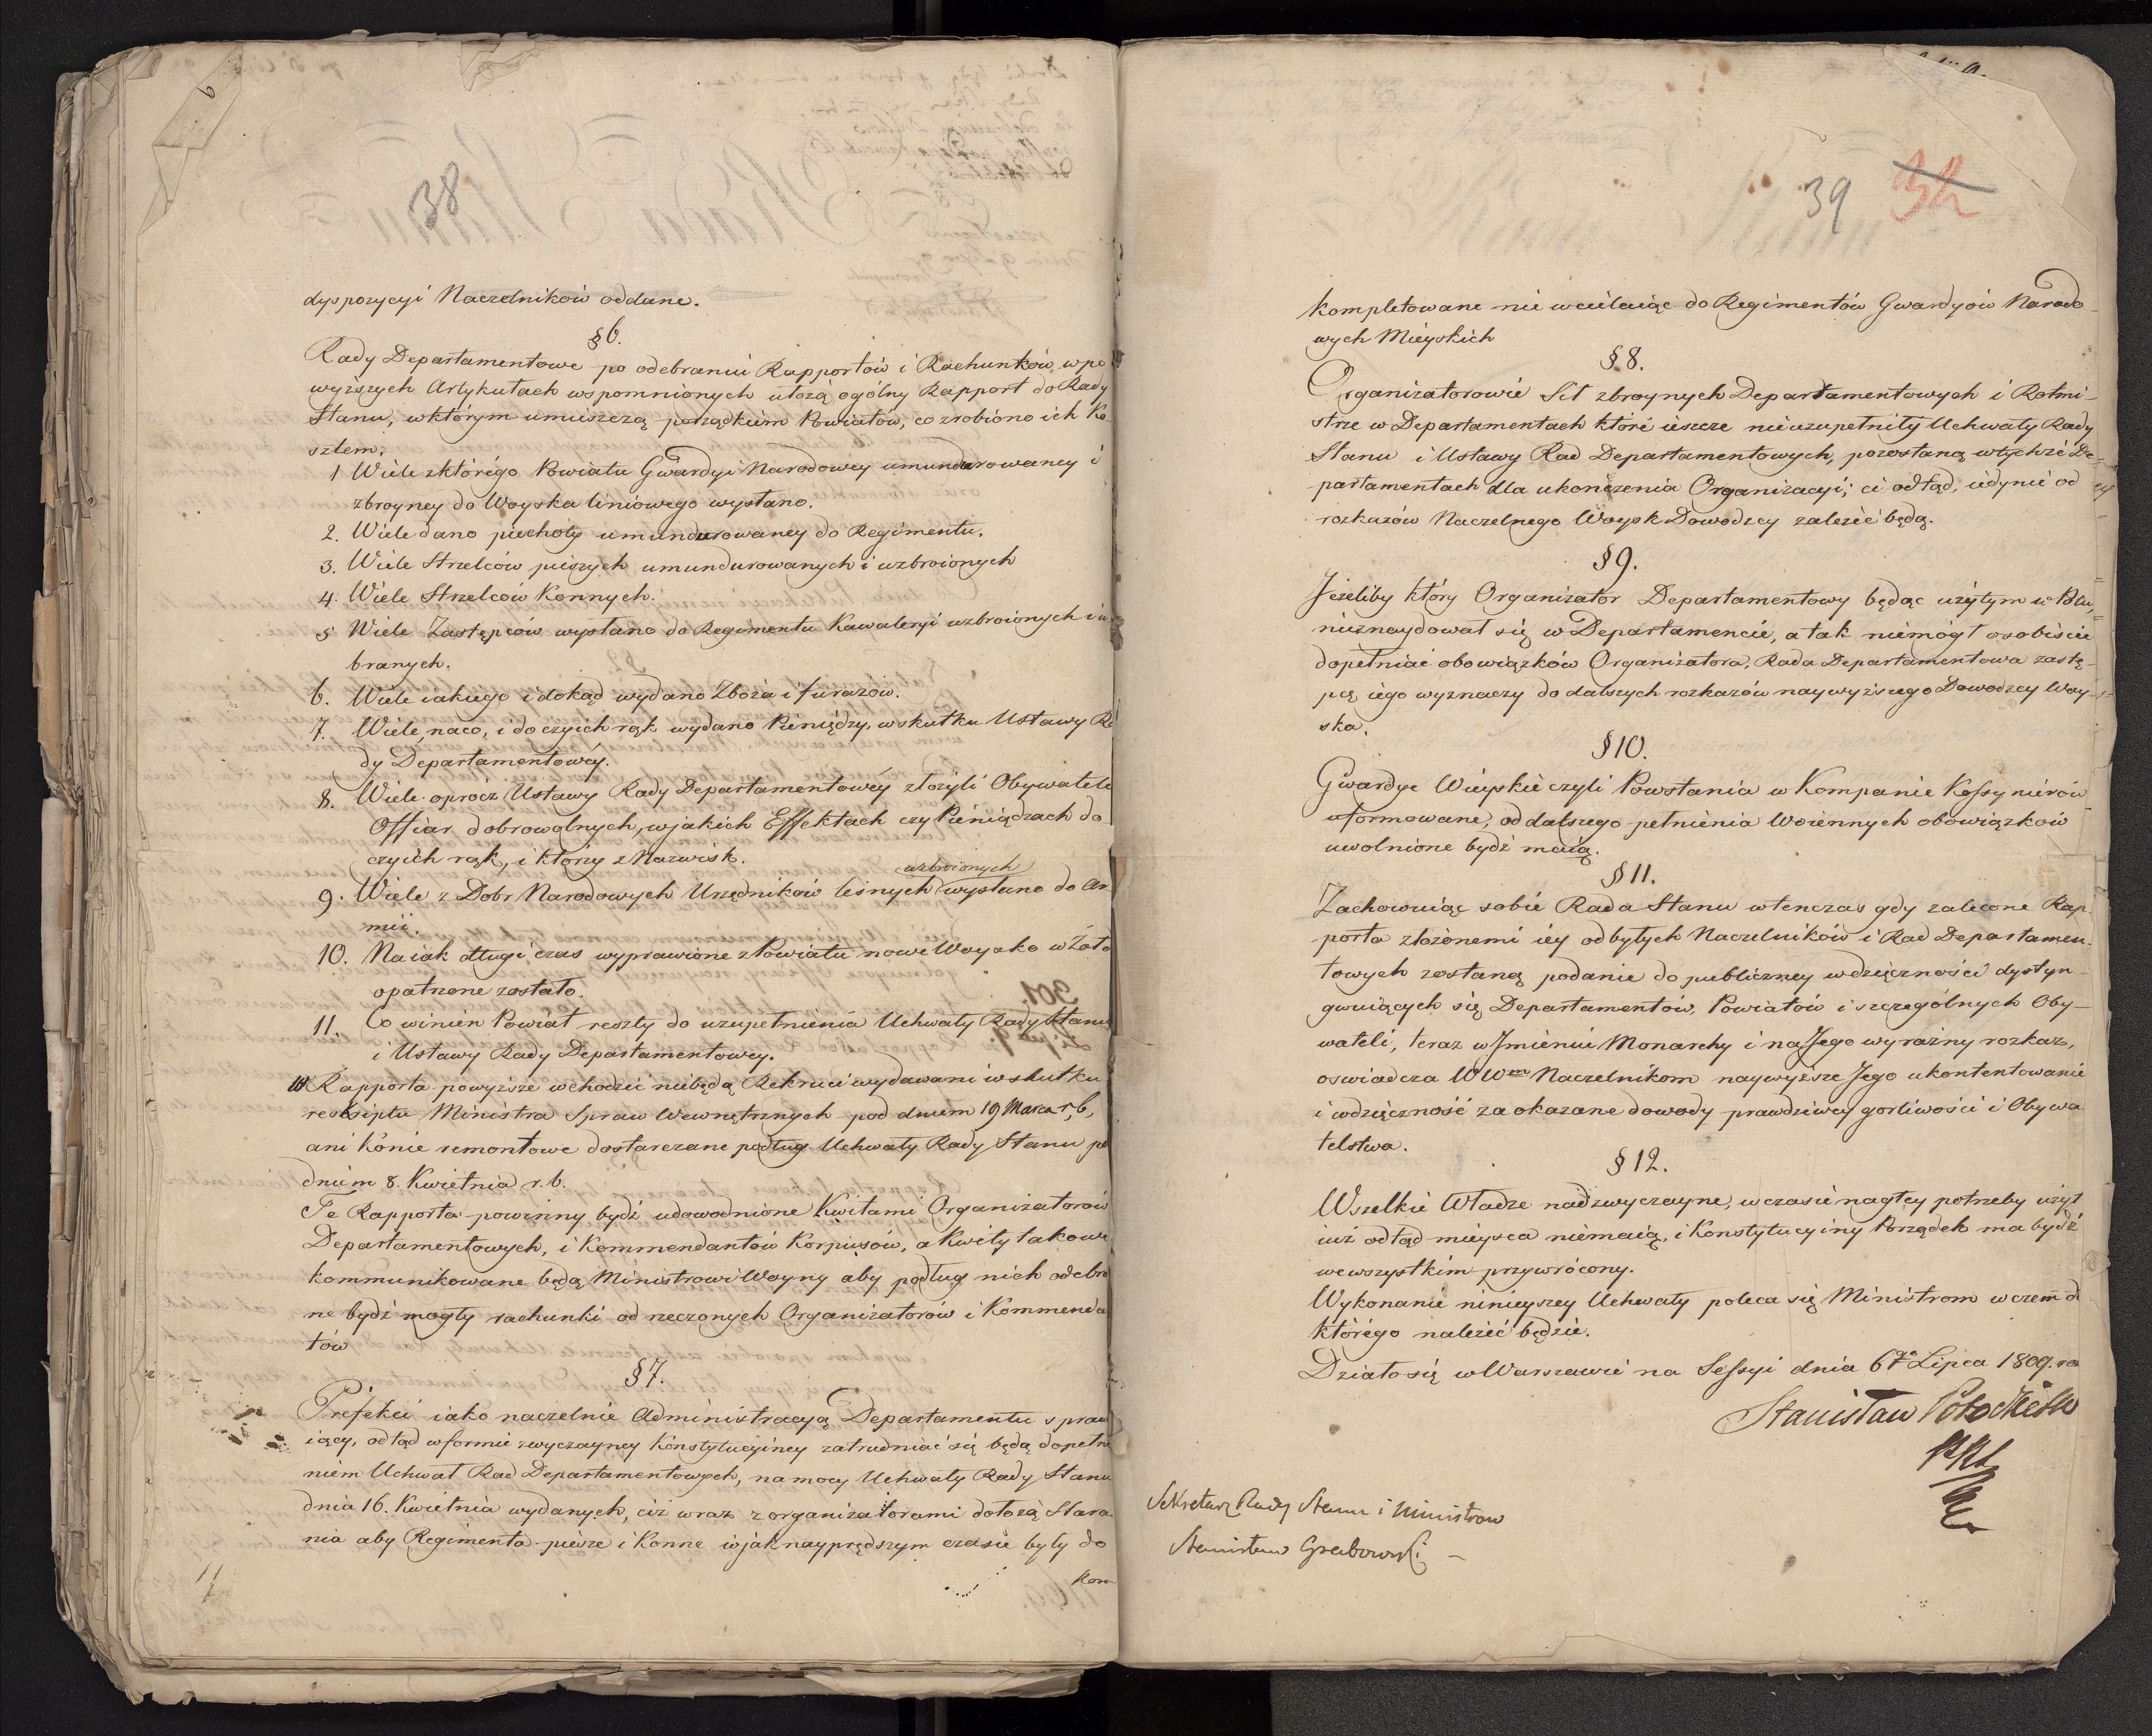 38
dyspozycyi Naczelników oddane.
§ 6.
Rady Departamentowe po odebraniu Rapportów i Rachunków w po
wyższych Artykułach wspomnionych ułożą ogólny Rapport do Rady
Stanu, w którym umieszczą porządkiem Powiatów, co zrobiono ich Ko
sztem.
1 Wiele z którégo Powiatu Gwardyi Narodowey umundurowaney i
zbroyney do Woyska liniowego wysłano.
2. Wiele dano piechoty umundurowaney do Regimentu.
3. Wiele Strzelców pieszych umundurowanych i uzbroionych
4. Wiele Strzelców Konnych.
5 Wiele Zastępców wysłano do Regimentu Kawaleryi uzbroionych i u
branych.
6. Wiele iakiego i dokąd wydano Zboża i furażów.
7. Wiele, na co, i do czyich rąk wydano Pieniędzy, w skutku Ustawy Ra
dy Departamentowéy.
8. Wiele oprócz Ustawy Rady Departamentowéy złożyli Obywatele
Offiar dobrowolnych, w jakich Effektach czy Pieniądzach do
czyich rąk, i którzy z Nazwisk.
uzbroionych
9. Wiele z Dobr Narodowych Urzędników leśnych wysłano do Ar
mii.
10. Na iak długi czas wyprawione z Powiatu nowe Woysko w Żołd
opatrzone zostało.
11. Co winien Powiat reszty do uzupełnienia Uchwały Rady Stanu
i Ustawy Rady Departamentowey.
W Rapporta powyższe wchodzić niebędą Rekruci wydawani w skutku
reskriptu Ministra Spraw Wewnętrznych pod dniem 19 Marca r. b,
ani Konie remontowe dostarczane podług Uchwały Rady Stanu po
dniem 8. Kwietnia r. b.
Te Rapporta powinny bydź udowodnione Kwitami Organizatorów
Departamentowych, i Kommendantów Korpusów, a Kwity takowe
kommunikowane będą Ministrowi Woyny aby podług nich odebra
ne bydź mogły rachunki od rzeczonych Organizatorów i Kommenda
tów
§ 7.
Prefekci iako naczelnie Administracyą Departamentu spraw
iący, odtąd w formie zwyczayney Konstytucyiney zatrudniać się będą dopełn
niem Uchwał Rad Departamentowych, na mocy Uchwały Rady Stanu
dnia 16. Kwietnia wydanych, ciż wraz z organizatorami dołożą Stara
nia aby Regimenta piesze i Konne w jak nayprędszym czasie były do
Kom
39 32
kompletowane nie wcielaiąc do Regimentów Gwardyów Narodo
wych Mieyskich
§ 8.
Organizatorowie Sił zbroynych Departamentowych i Rotmi-
strze w Departamentach które ieszcze nie uzupełniły Uchwały Rady
Stanu i Ustawy Rad Departamentowych, pozostaną w tychże De-
partamentach dla ukończenia Organizacyi; ci odtąd, iedynie od
rozkazów Naczelnego Woysk Dowodzcy zależéć będą.
§ 9.
Jeżeliby który Organizator Departamentowy będąc użytym w Polu,
nieznaydował się w Departamencie, a tak niemógł osobiście
dopełniać obowiązków Organizatora, Rada Departamentowa zastę-
pcę iego wyznaczy do dalszych rozkazów naywyższego Dowodzcy Woy-
ska.
§ 10.
Gwardye Wieyskie czyli Powstania w Kompanie Kossynierów
uformowane, od dalszego pełnienia Woiennych obowiązków
uwolnione bydź maią.
§ 11.
Zachowuiąc sobie Rada Stanu wtenczas gdy zalecone Rap
porta złożonemi iéy od byłych Naczelników i Rad Departamen-
towych zostaną podanie do publiczney wdzięczności dystyn-
gwuiących się Departamentów, Powiatów i szczególnych Oby-
wateli, teraz w Jmieniu Monarchy i na Jego wyraźny rozkaz,
oswiadcza WWm Naczelnikom naywyższe Jego ukontentowanie
i wdzięczność za okazane dowody prawdziwey gorliwości i Obywa
telstwa.
§ 12.
Wszelkie Władze nadzwyczayne, w czasie nagłey potrzeby użyt
iuż odtąd mieysca niemaią, i Konstytucyiny Porządek ma bydź
we wszystkim przywrócony.
Wykonanie ninieyszey Uchwały poleca się Ministrom w czem do
którégo należéć będzie.
Działo się w Warszawie na Sessyi dnia 6go Lipca 1809. ro
Stanisław Potocki
Sekretarz Rady Stanu i Ministrow
Stanisław Grabowski